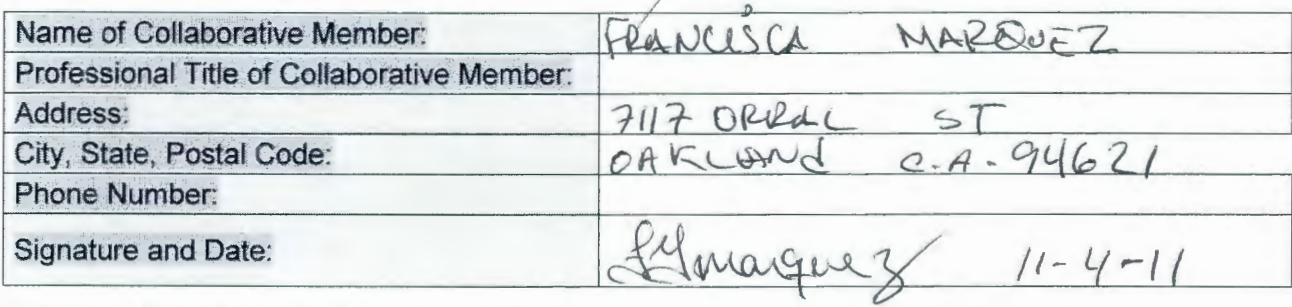 Name of Collaborative Member: FRANCISCA MARQUEZ
Professional Title of Collaborative Member:
Address: 7117 ORRAL ST
City, State, Postal Code: OAKLAND C.A. 94621
Phone Number:
Signature and Date: FYmarquez 11-4-11